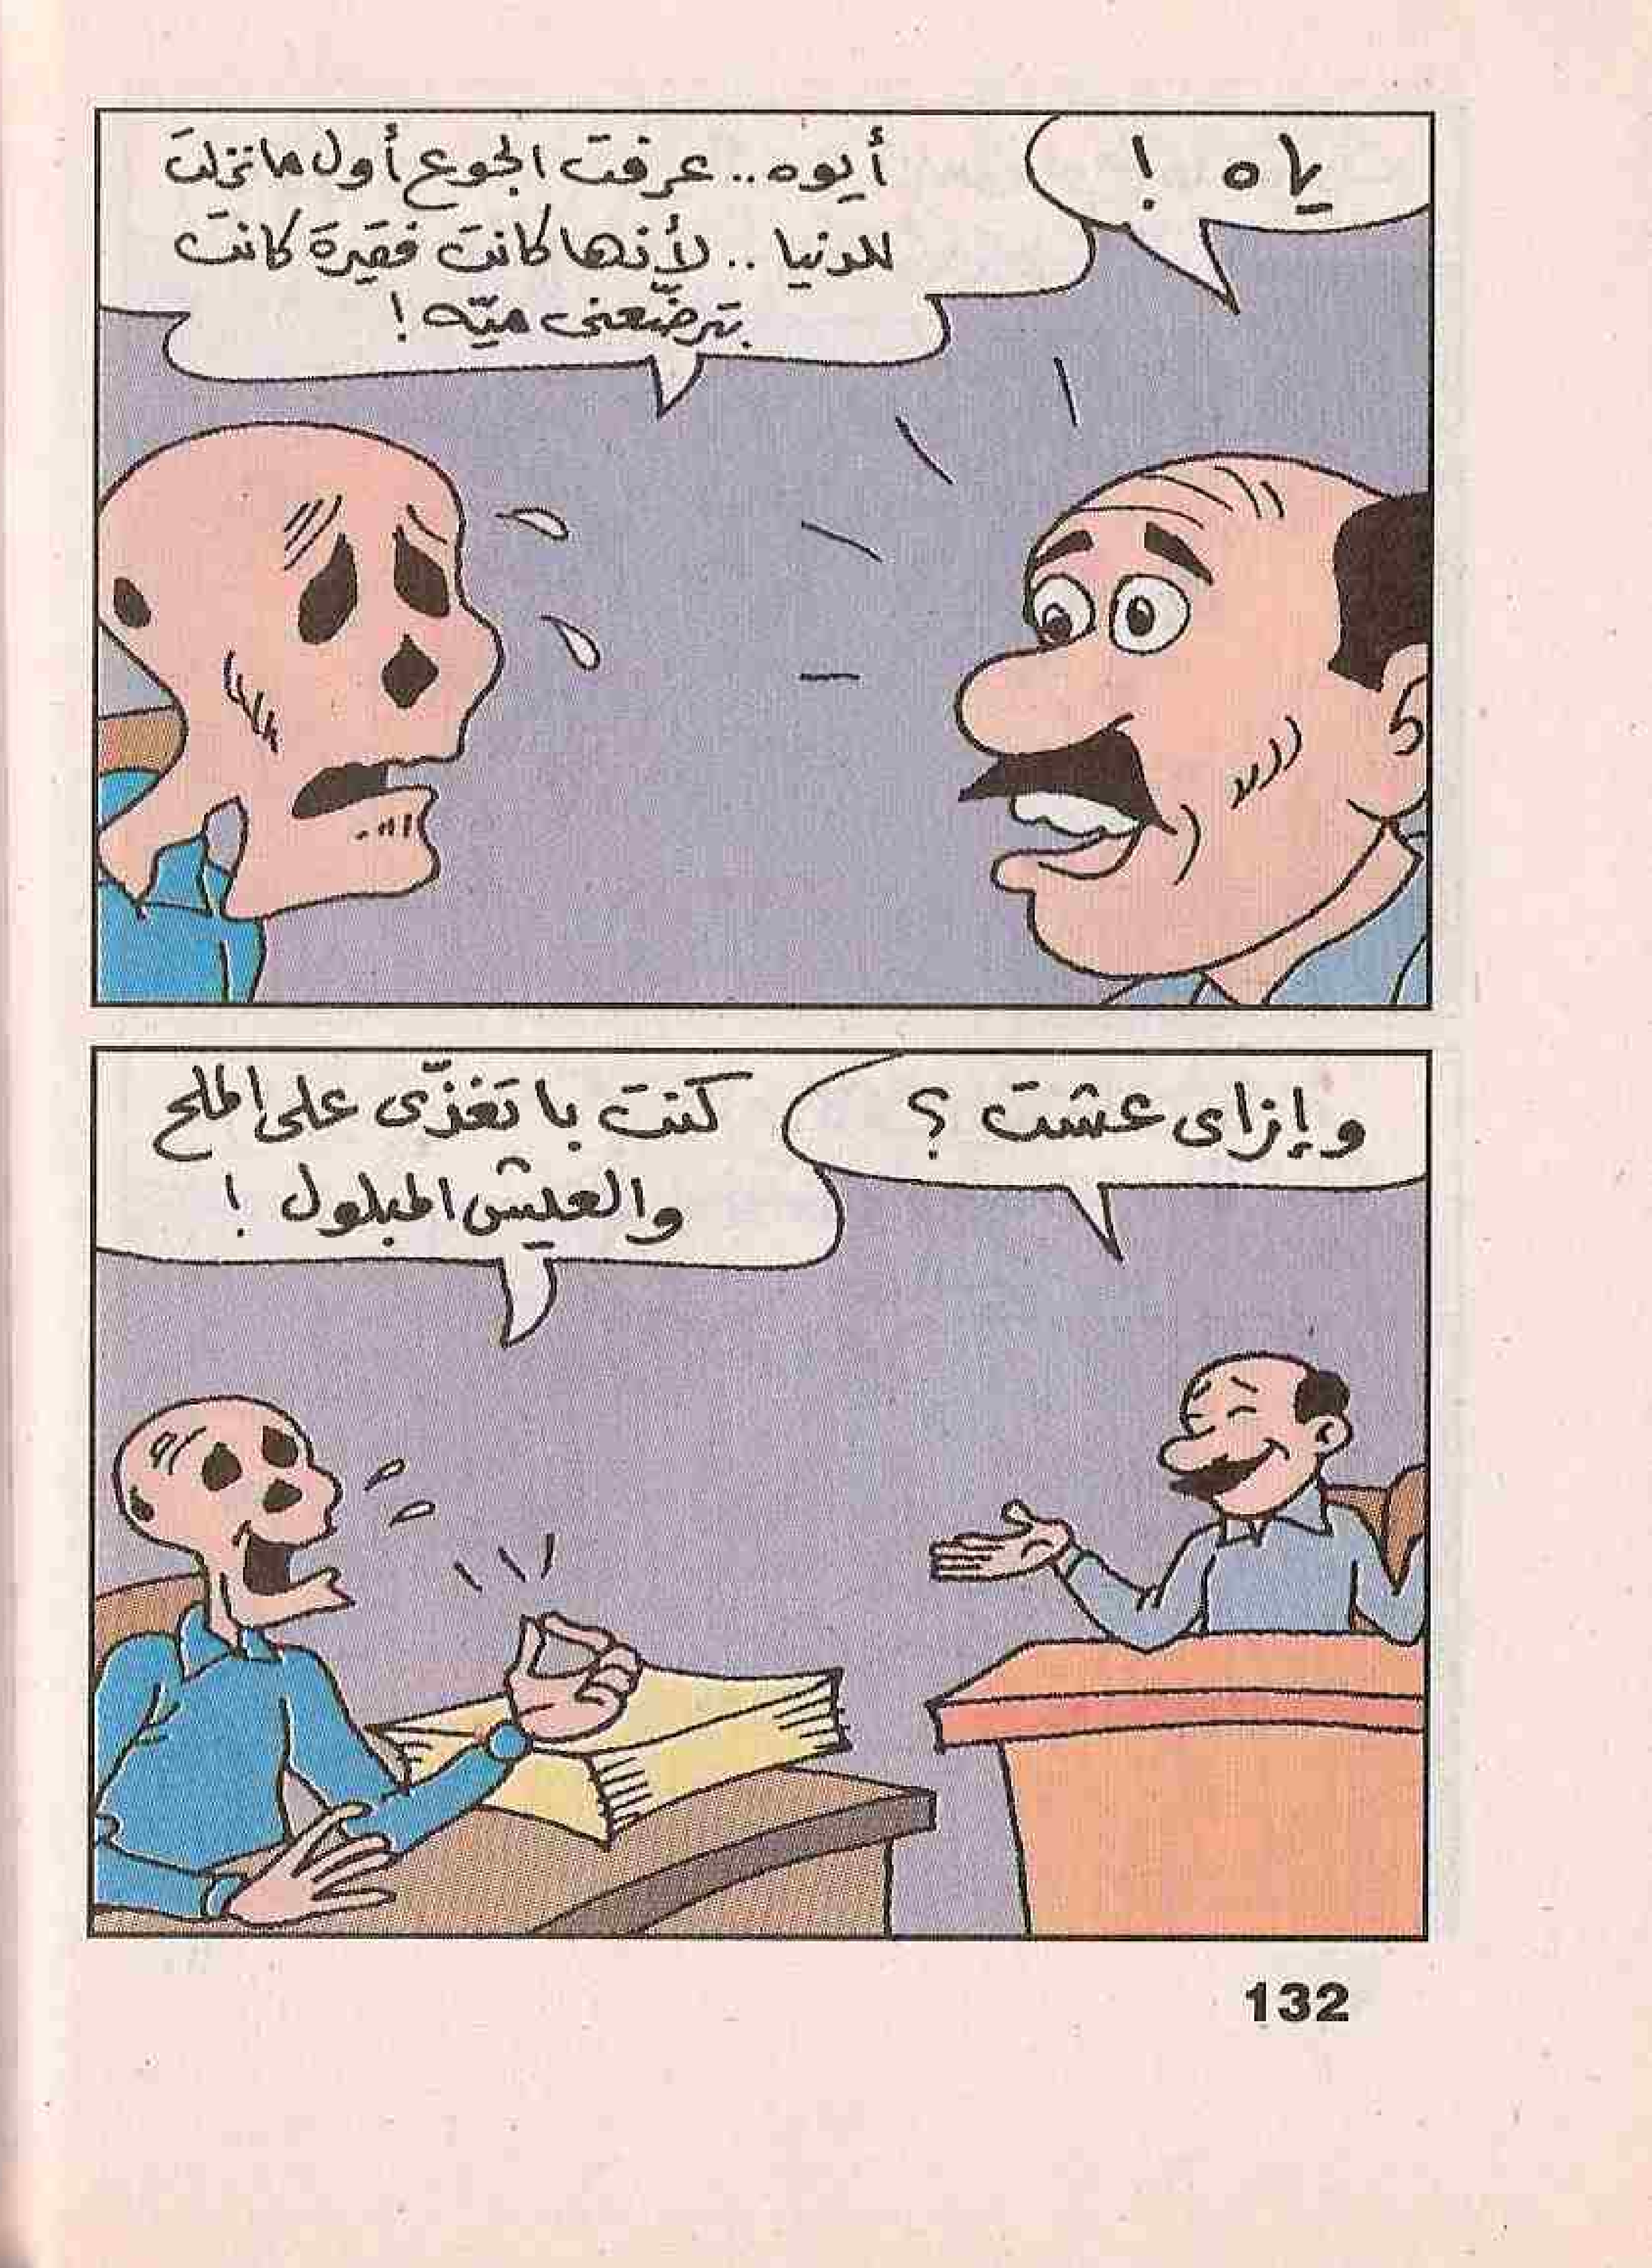 ياه !
أيوه .. عرفت الجوع أول ما نزلت
للدنيا .. لأنها كانت فقيرة كانت
بترضّعنى ميّه !
وإزاى عشت ؟
كنت باتغذّى على الملح
والعيش المبلول !
132